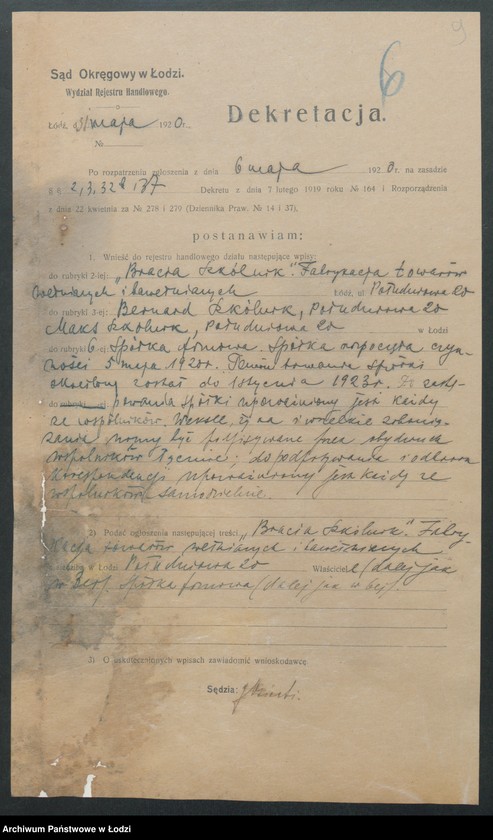 9
6
Sąd Okręgowy w Łodzi.
Wydział Rejestru Handlowego.
Dekretacja.
Łódź, 31 maja 1920 r.
№
Po rozpatrzeniu zgłoszenia z dnia 6 maja 1920 r. na zasadzie
2, 3, 32 i 37 Dekretu z dnia 7 lutego 1919 roku № 164 i Rozporządzenia
z dnia 22 kwietnia za № 278 i 279 (Dziennika Praw. № 14 i 37),
postanawiam:
1. Wnieść do rejestru handlowego działu następujące wpisy:
do rubryki 2-iej: „Bracia Szkólnik". Fabrykacja towarów
wełnianych i bawełnianych Łódź, ul. Południowa 20
do rubryki 3-iej: Bernard Szkólnik, Południowa 20
Maks Szkólnik, Południowa 20 w Łodzi
do rubryki 6. Spółka firmowa. Spółka rozpoczęła czyn-
ności 5 maja 1920 r. trwania spółki
określony został do 1 stycznia 1923 r.
do rubryki spółki upoważniony jest każdy
ze wspólników. Weksle, i wszelkie zobowią-
zania winny być podpisywane przez obydwuch
wspólników łącznie; do podpisywania i odbioru
korespondencji upoważniony jest każdy ze
wspólników samodzielnie.
2) Podać ogłoszenia następującej treści „Bracia Szkólnik". Fabry-
kacja towarów wełnianych i bawełnianych
w Łodzi Południowa 20 Właściciele (dalej jak
w 3 ej). Spółka firmowa (dalej jak w 6 ej).
3) O uskutecznionych wpisach zawiadomić wnioskodawcę
Sędzia:
Archiwum Państwowe w Łodzi